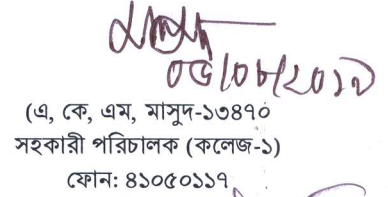 ০৫/০৮/২০১৯
(এ, কে, এম, মাসুদ-১৩৪৭০
সহকারী পরিচালক (কলেজ-১)
ফোন: ৪১০৫০১১৭